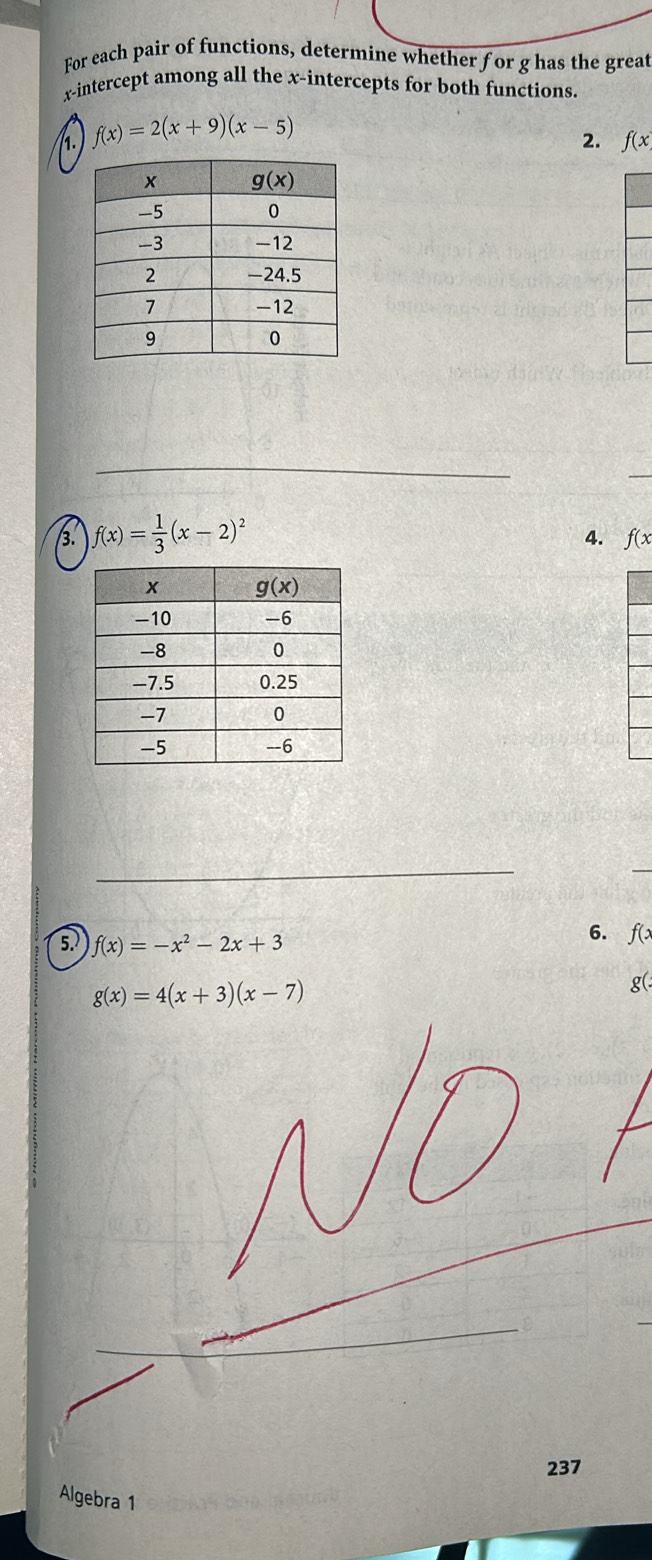 For each pair of functions, determine whether f or g has the great
x-intercept among all the x-intercepts for both functions.
1. f(x) = 2(x + 9)(x − 5)
x g(x)
−5 0
−3 −12
2 −24.5
7 −12
9 0
2. f(x)
3. f(x) = 1/3 (x − 2)²
x g(x)
−10 −6
−8 0
−7.5 0.25
−7 0
−5 −6
4. f(x
5. f(x) = −x² − 2x + 3
g(x) = 4(x + 3)(x − 7)
6. f(x
g(
NO
© Houghton Mifflin Harcourt Publishing Company
237
Algebra 1